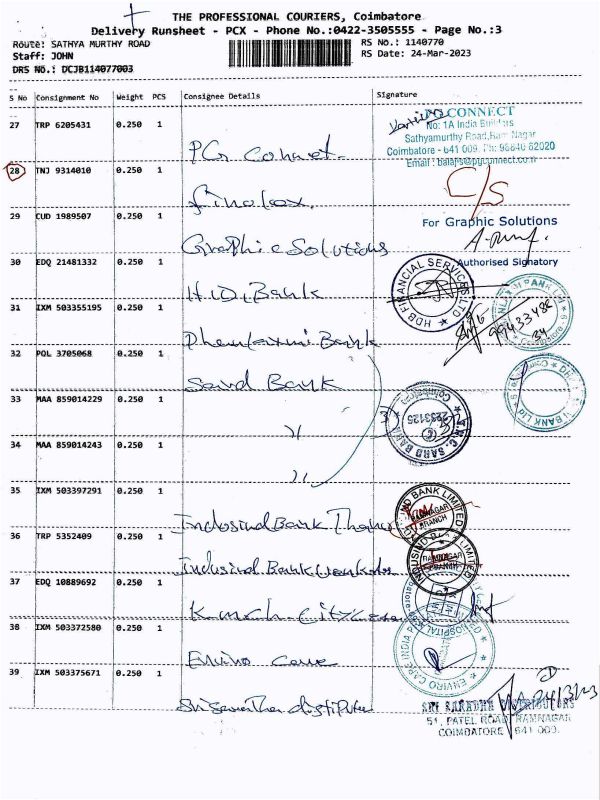 THE PROFESSIONAL COURIERS, Coimbatore
Delivery Runsheet - PCX - Phone No.:0422-3505555 - Page No.:3
Route: SATHYA MURTHY ROAD RS No.: 1140770
Staff: JOHN RS Date: 24-Mar-2023
DRS No.: DCJB114077003
S No Consignment No Weight PCS Consignee Details Signature
27 TRP 6205431 0.250 1
CONNECT
No: 1A India Builders
Sathyamurthy Road, Ram Nagar
Coimbatore - 641 009. Ph: 98840 82020
28 TNJ 9314010 0.250 1
Finolex.
C/S
29 CUD 1989507 0.250 1
Graphic Solutions
For Graphic Solutions
Authorised Signatory
30 EDQ 21481332 0.250 1
H.D. Bank
HDB FINANCIAL SERVICES LTD
31 IXM 503355195 0.250 1
Dhanlaxmi Bank
32 PQL 3705068 0.250 1
Sard Bank
33 MAA 859014229 0.250 1
〃
34 MAA 859014243 0.250 1
〃
35 IXM 503397291 0.250 1
Indusind Bank
INDUSIND BANK LIMITED
RAMNAGAR
BRANCH
36 TRP 5352409 0.250 1
Indusind Bank
37 EDQ 10889692 0.250 1
38 IXM 503372580 0.250 1
Enviro Care
ENVIRO CARE INDIA
39 IXM 503375671 0.250 1
SRI SARADHA DISTRIBUTORS
51, PATEL ROAD, RAMNAGAR
COIMBATORE 641 009.